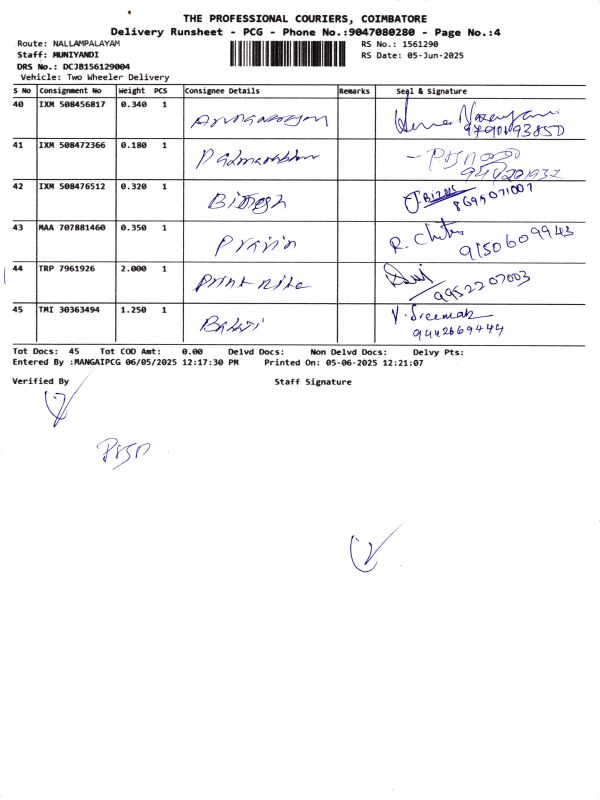 THE PROFESSIONAL COURIERS, COIMBATORE
Delivery Runsheet - PCG - Phone No.:9047080280 - Page No.:4
Route: NALLAMPALAYAM RS No.: 1561290
Staff: MUNIYANDI RS Date: 05-Jun-2025
DRS No.: DCJB156129004
Vehicle: Two Wheeler Delivery
S No Consignment No Weight PCS Consignee Details Remarks Seal & Signature
40 IXM 508456817 0.340 1
41 IXM 508472366 0.180 1
42 IXM 508476512 0.320 1 8695071007
43 MAA 707881460 0.350 1 Pravin 9150609943
44 TRP 7961926 2.000 1 Print Rite 9952207003
45 TMI 30363494 1.250 1 Balaji 9442669444
Tot Docs: 45 Tot COD Amt: 0.00 Delvd Docs: Non Delvd Docs: Delvy Pts:
Entered By :MANGAIPCG 06/05/2025 12:17:30 PM Printed On: 05-06-2025 12:21:07
Verified By Staff Signature